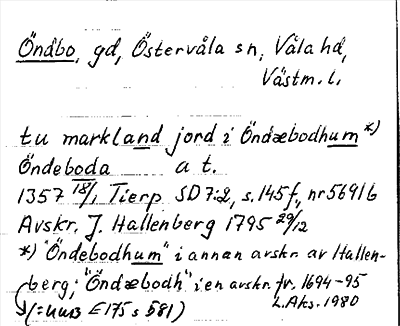 Öndbo, gd, Östervåla sn, Våla hd,
Västm. l.
tu markland jord i Öndæbodhum *)
Öndeboda a t.
1357 18/1 Tierp SD 7:2, s. 145 f, nr 5691 b
Avskr. J. Hallenberg 1795 29/12
*) "Öndebodhum" i annan avskr. av Hallen-
berg; "Öndæbodh" i en avskr. fr. 1694-95
(= UUB E 175 s 581) L. Aks. 1980